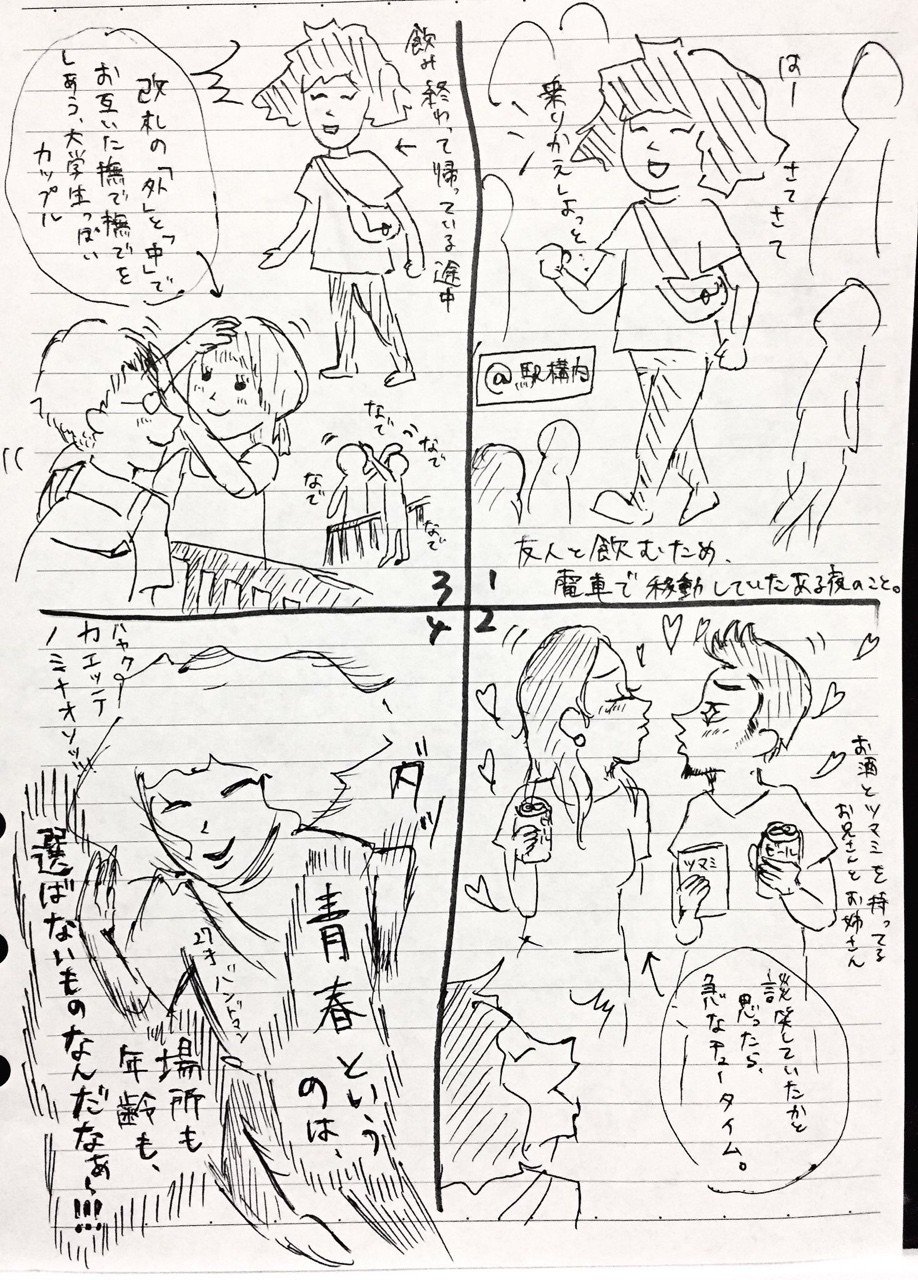 はー
さてさて
乗りかえしよっと
@駅構内
友人と飲むため、
電車で移動していたある夜のこと。
1
2
お酒とツマミを持ってる
お兄さんとお姉さん
ビール
ツマミ
ビール
談笑していたかと
思ったら、
急なチュータイム。
3
飲み終わって帰っている途中
改札の「外」と「中」で
お互いた撫で撫でを
しあう、大学生っぽい
カップル
なで
なで
なで
なで
4
青春という
のは、
場所も
年齢も、
選ばないものなんだなぁ〜!!!
27才バンドマン
ハヤクー
カエッテ
ノミナオソッ